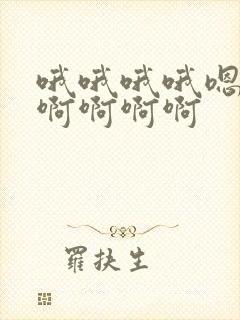 哦哦哦哦嗯
啊啊啊啊
羅扶生